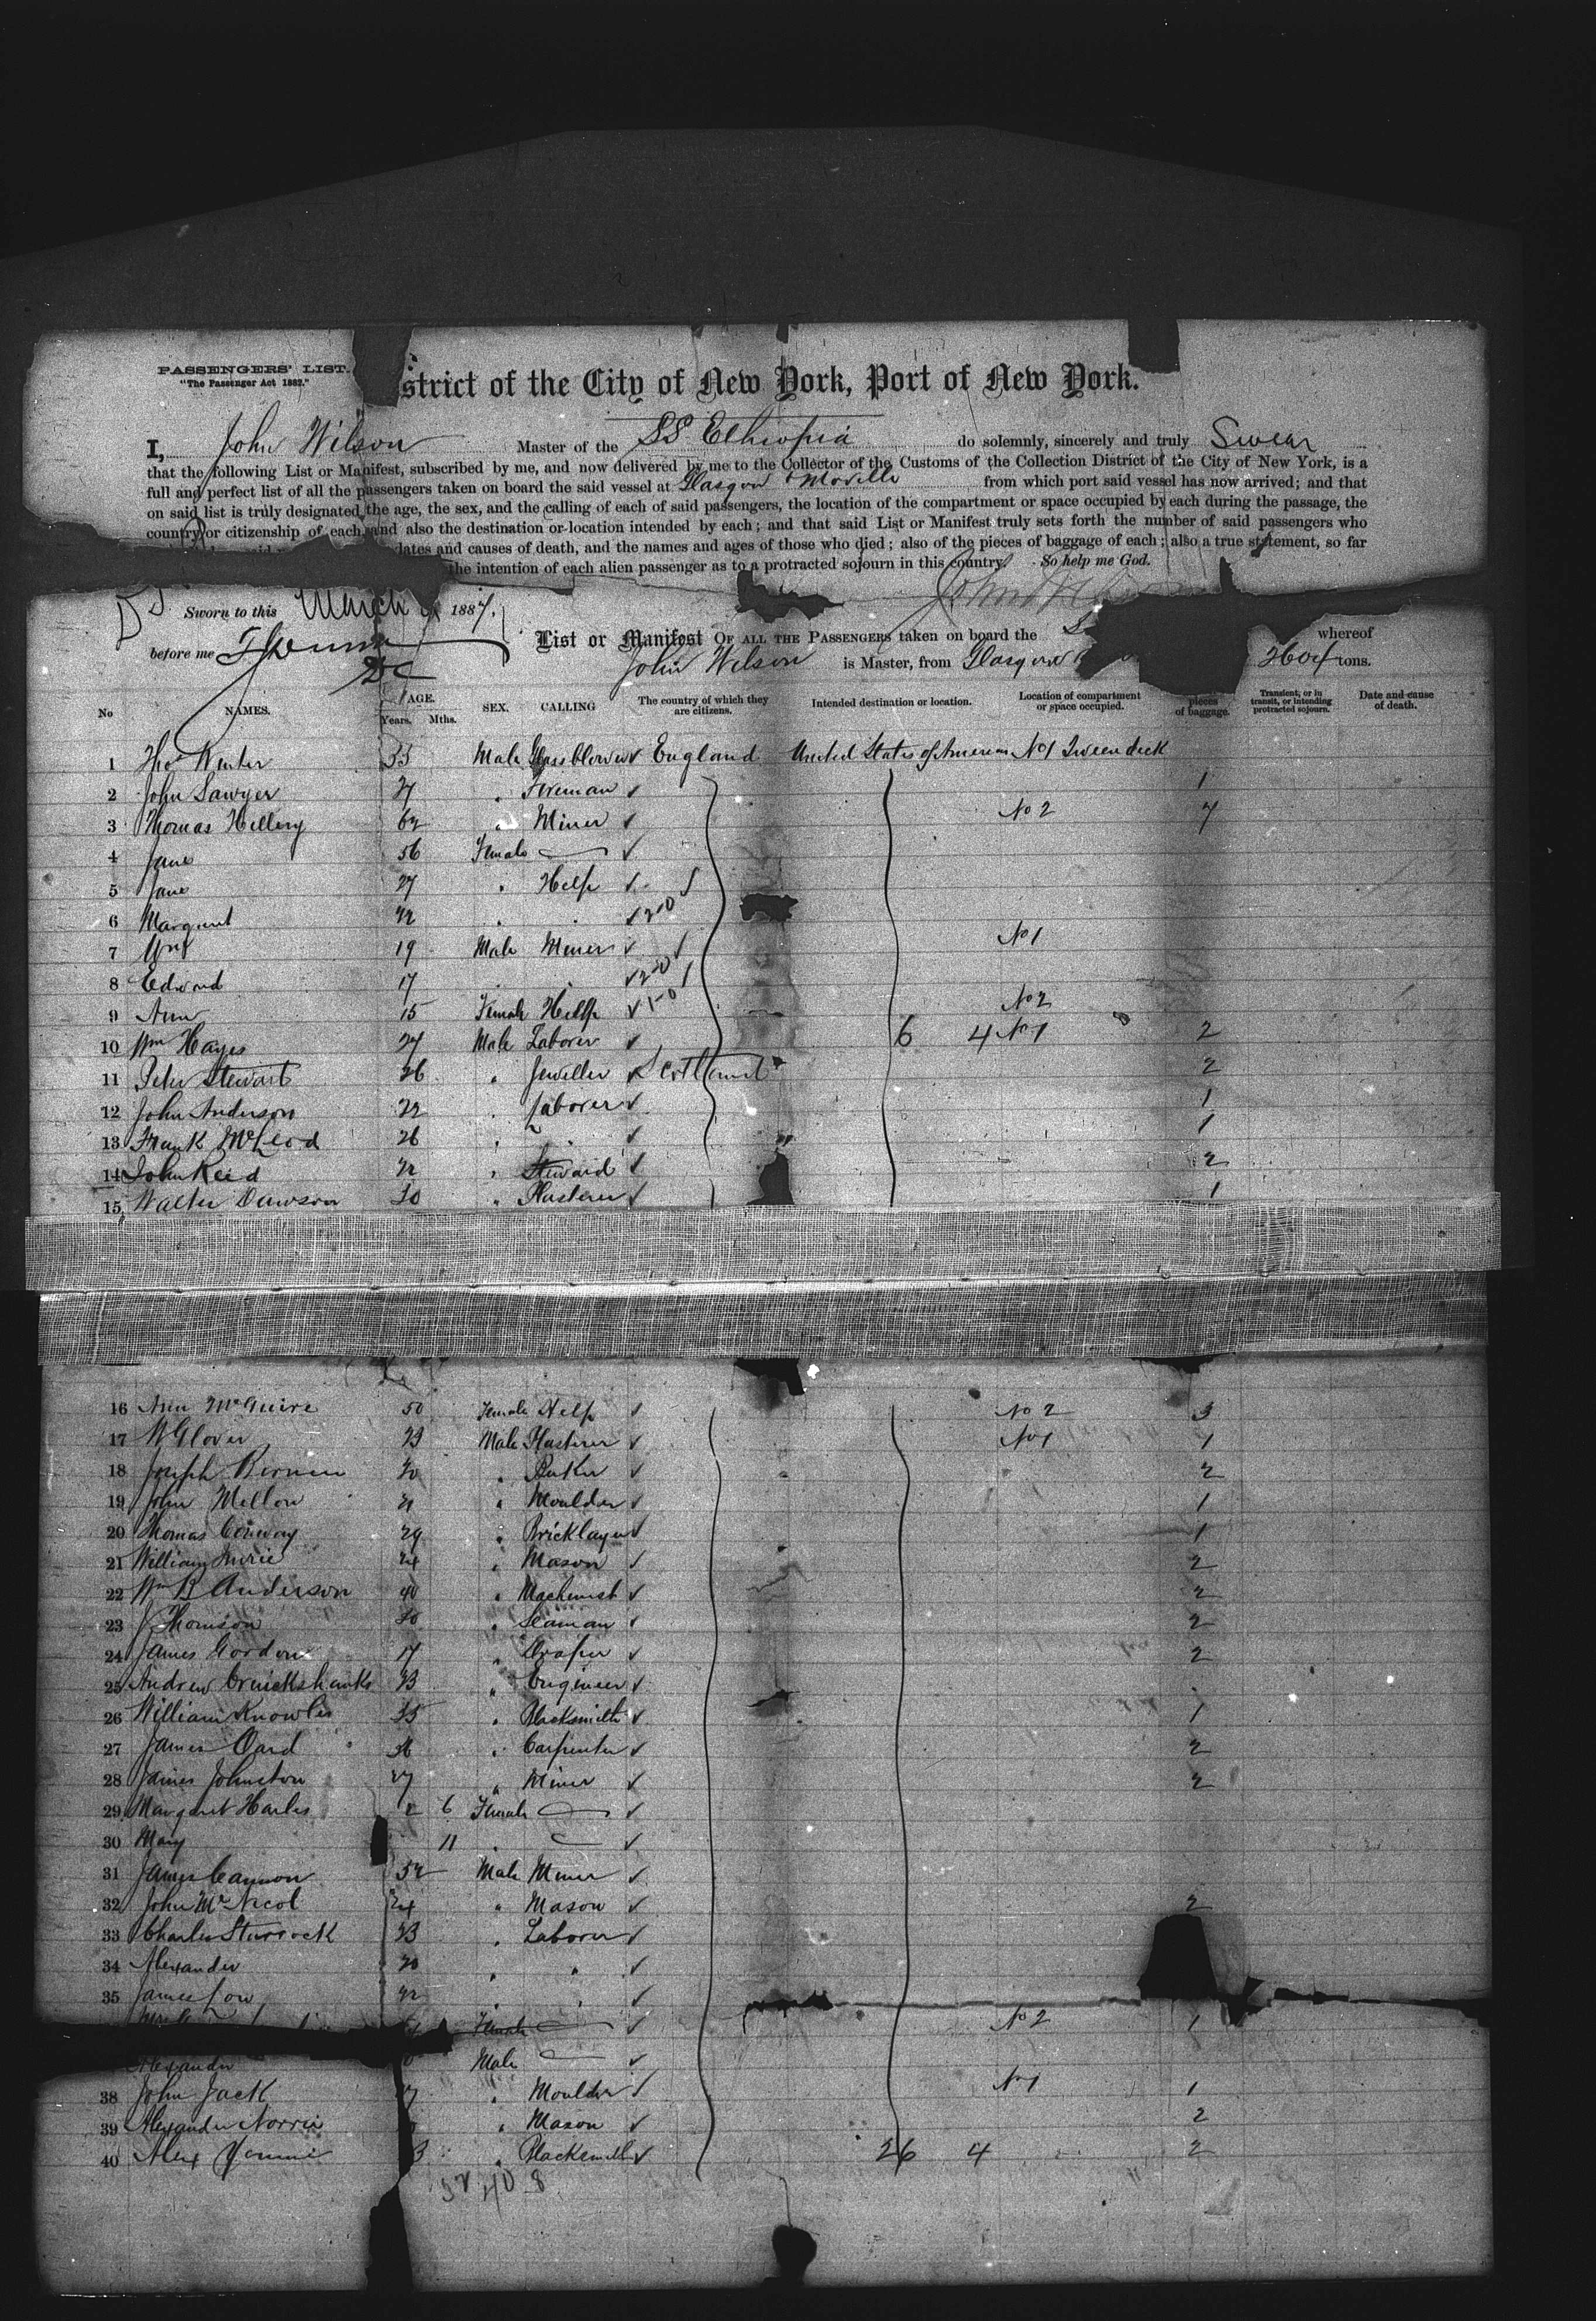 PASSENGERS' LIST.
"The Passenger Act 1882."
strict of the City of New York, Port of New York.
I, John Wilson Master of the SS Ethiopia do solemnly, sincerely and truly Swear
that the following List or Manifest, subscribed by me, and now delivered by me to the Collector of the Customs of the Collection District of the City of New York, is a
full and perfect list of all the passengers taken on board the said vessel at Glasgow & Moville from which port said vessel has now arrived; and that
on said list is truly designated the age, the sex, and the calling of each of said passengers, the location of the compartment or space occupied by each during the passage, the
country or citizenship of each, and also the destination or location intended by each; and that said List or Manifest truly sets forth the number of said passengers who
dates and causes of death, and the names and ages of those who died; also of the pieces of baggage of each; also a true statement, so far
the intention of each alien passenger as to a protracted sojourn in this country. So help me God.
John Wilson
Sworn to this March 1887.
before me
List or Manifest OF ALL THE PASSENGERS taken on board the whereof
John Wilson is Master, from Glasgow 2604 tons.
No NAMES. AGE. Years. Mths. SEX. CALLING The country of which they are citizens. Intended destination or location. Location of compartment or space occupied. pieces of baggage. Transient, or in transit, or intending protracted sojourn. Date and cause of death.
1 Thos Winter 33 Male Glassblower England United States of America No 1 Tween deck
2 John Sawyer 27 " Fireman 1
3 Thomas Hellery 62 " Miner No 2 7
4 Jane 56 Female
5 Jane 27 " Help
6 Margaret 22 " "
7 Wm 19 Male Miner No 1
8 Edward 17 " "
9 Ann 15 Female Help No 2
10 Wm Hayes 27 Male Laborer 6 4 No 1 2
11 Peter Stewart 26 " Jeweller Scotland 2
12 John Anderson 22 " Laborer 1
13 Frank McLeod 26 " " 1
14 John Reid 22 " Steward 2
15 Walter Dawson 30 " Plasterer 1
16 Ann McGuire 50 Female Help No 2 3
17 W Glover 23 Male Plasterer No 1 1
18 Joseph 20 " Baker 2
19 John Mellon 21 " Moulder 1
20 Thomas Conway 29 " Bricklayer 1
21 William 24 " Mason 2
22 Wm B Anderson 40 " Machinist 2
23 J Thomson 30 " Seaman 2
24 James Gordon 17 " Draper 2
25 Andrew Cruickshanks 23 " Engineer
26 William Knowles 35 " Blacksmith 1
27 James Oard 36 " Carpenter 2
28 James Johnston 27 " Miner 2
29 Margaret 2 6 Female
30 Mary 11 "
31 James Cannon 52 Male Miner
32 John McNicol 24 " Mason 2
33 Charles Sturrock 23 " Laborer
34 Alexander 20 " "
35 James Low 22 " "
Female No 2 1
Alexander Male
38 John Jack " Moulder No 1 1
39 Alexander Norrie " Mason 2
40 Alex 3 " Blacksmith 26 4 2
32 40 8